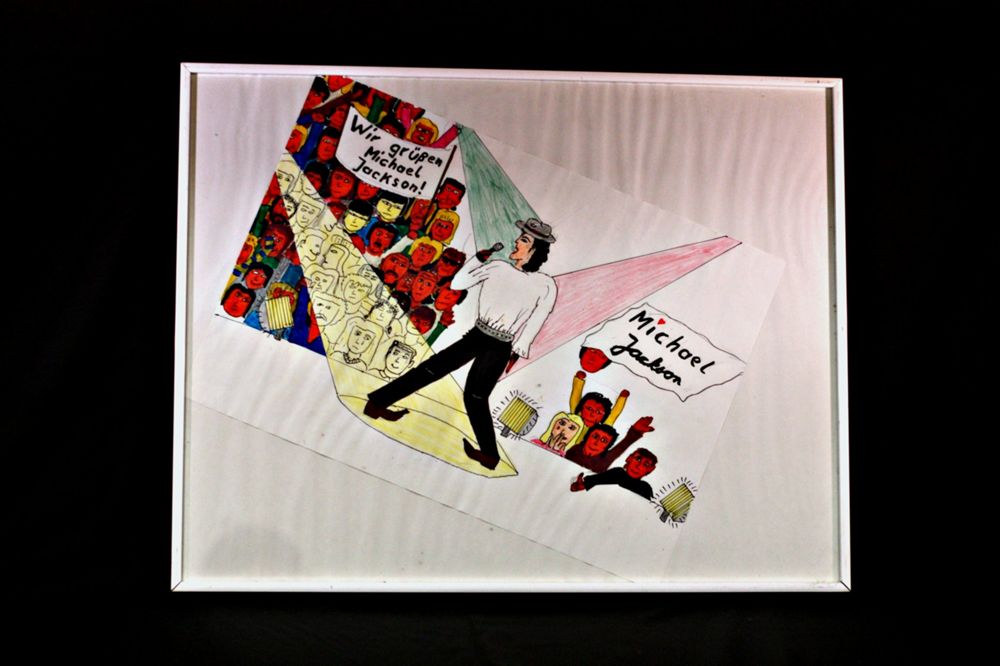 Wir grüßen
Michael
Jackson!
Michael
Jackson